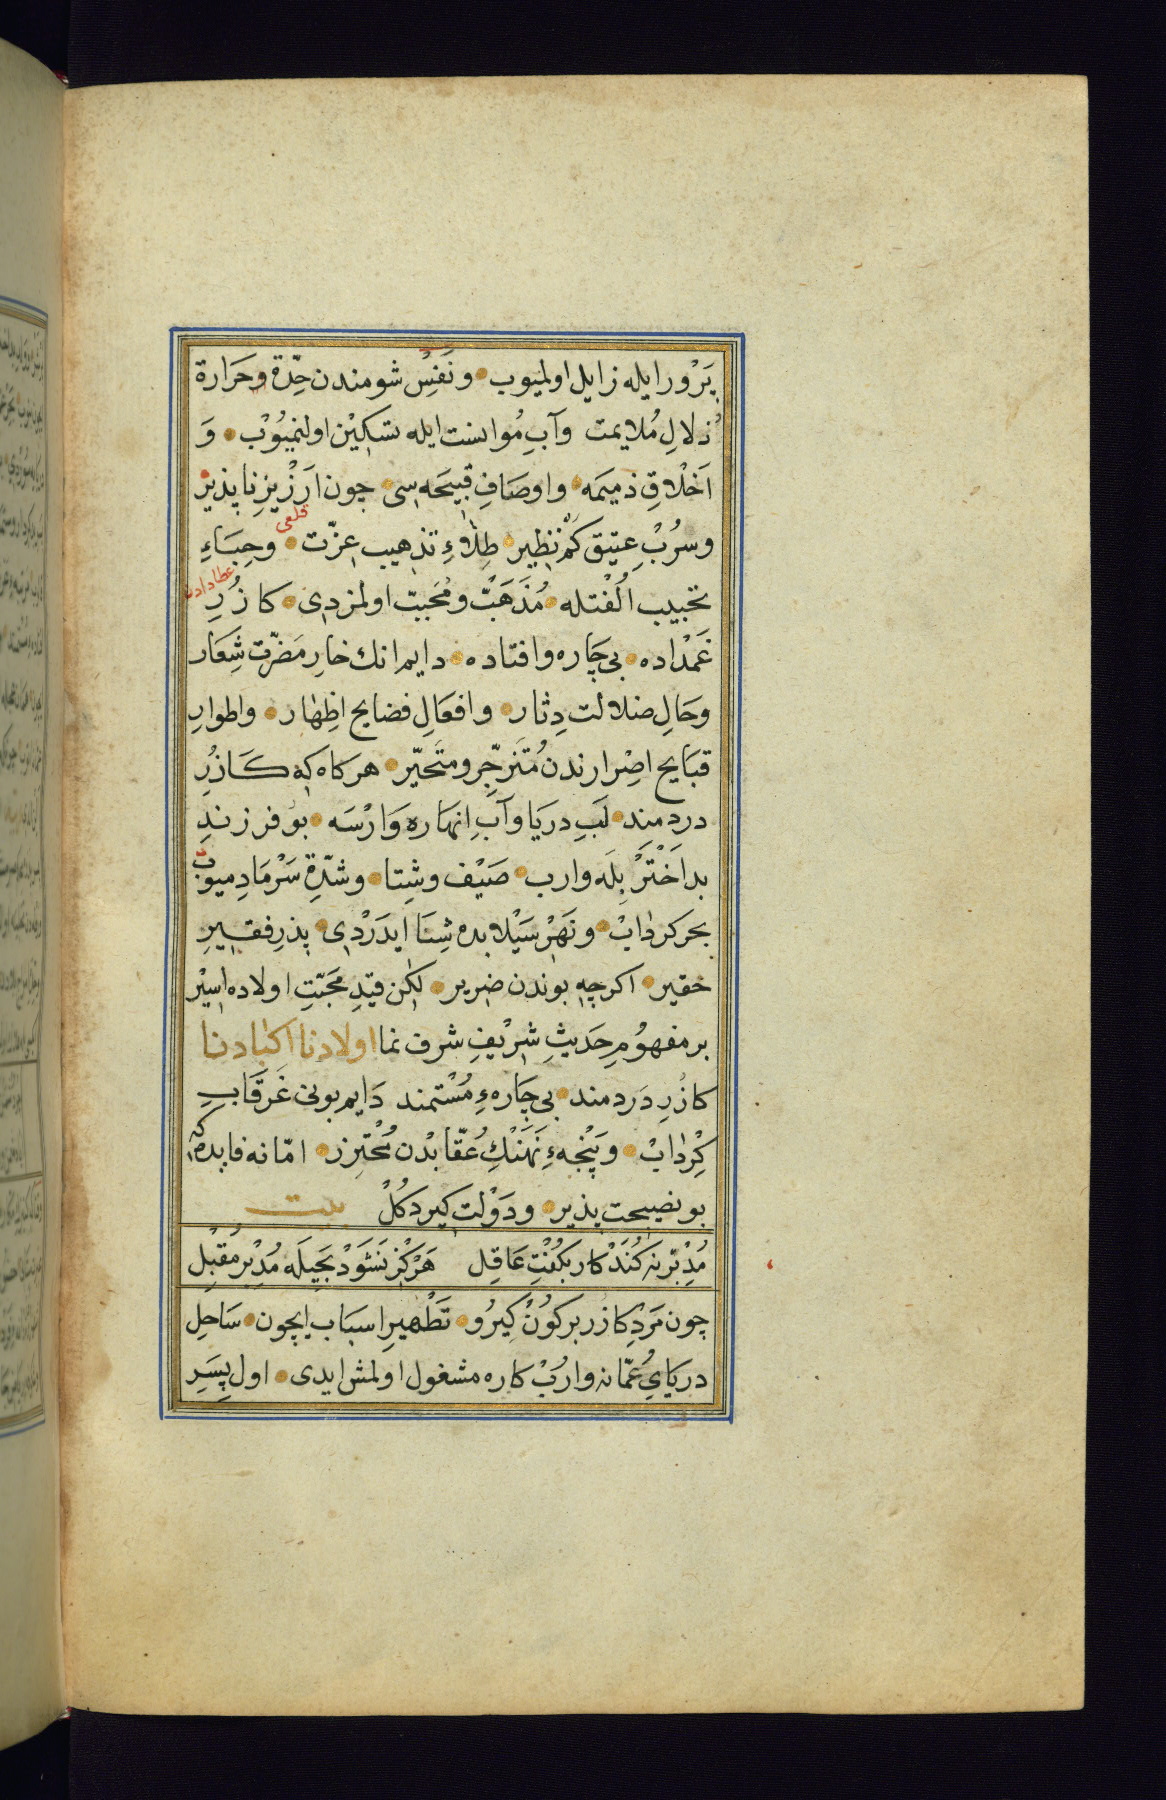 پَرْوَر ايله زايل اولميوب و نَفْسِ شومندن حِدّة و حَرَارة
زُلالِ مُلايمت وآبِ مُوانست ايله تسْكِيْن اولنميُوْب وَ
اَخْلاقِ ذميمَه واوصَافِ قبيحَه سى چون اَرْزيزِ ناپذير
وسرُبْ عتيق كم نظير طِلاءِ تذهيب عزّت وحِبَاءِ
قلعى
تحبيب اُلْفتله مُذَهَبْ ومُحَبيت اولمزدى كازُرِ
عطا دادن
غَمْداده بى چاره وافتاده دايم انك خارِ مَضرّت شِعَار
وحَالِ ضلالت دِثار وافعَالِ فضايح اظِهار واطوارِ
قبَايح اصِرارندن مُتنزجّر و متحيّر هر كاه كه كازُرِ
دردمند لَبِ دريَا وآبِ انهاره وَارْسَه بو فرزندِ
بد اَخْتَر بِلَه وارب صَيْف وشِتا وشدّةِ سَرْمَا دِميوب
بحر كردابْ ونَهْرْ سَيْلابده شِنَا ايدَرْدى پذرِ فقيرِ
حقير اكرچه بوندن ضرير لكن قيدِ محَبّتِ اولاده اسيْر
بر مفهوُمِ حَديثِ شريْفِ شرف نما اولادنا اكبادنا
كازُرِ دَردمند بى چاره ءِ مُسْتمند دَايم بونى غَرقَابِ
كِرْدابْ وپَنْجه ءِ نَهَنْكِ عُقّابْدن مُحْترز امّا نه فايده كه
بو نصيحت پذير ودَوْلت كير دكُلْ بيت
مُدْبْر نَه كُنَدْ كار بكُفْتِ عَاقِل هَرْكز نَشَوَدْ بَحِيلَه مُدْبْر مُقْبِل
چون مَرْدِ كازر بر كوُنْ كِيرُو تَطْهيرِ اسبَاب ايچون سَاحِلِ
دريَايِ عُمّانه وارُبْ كاره مشغول اولمش ايدى اول پِسَرِ